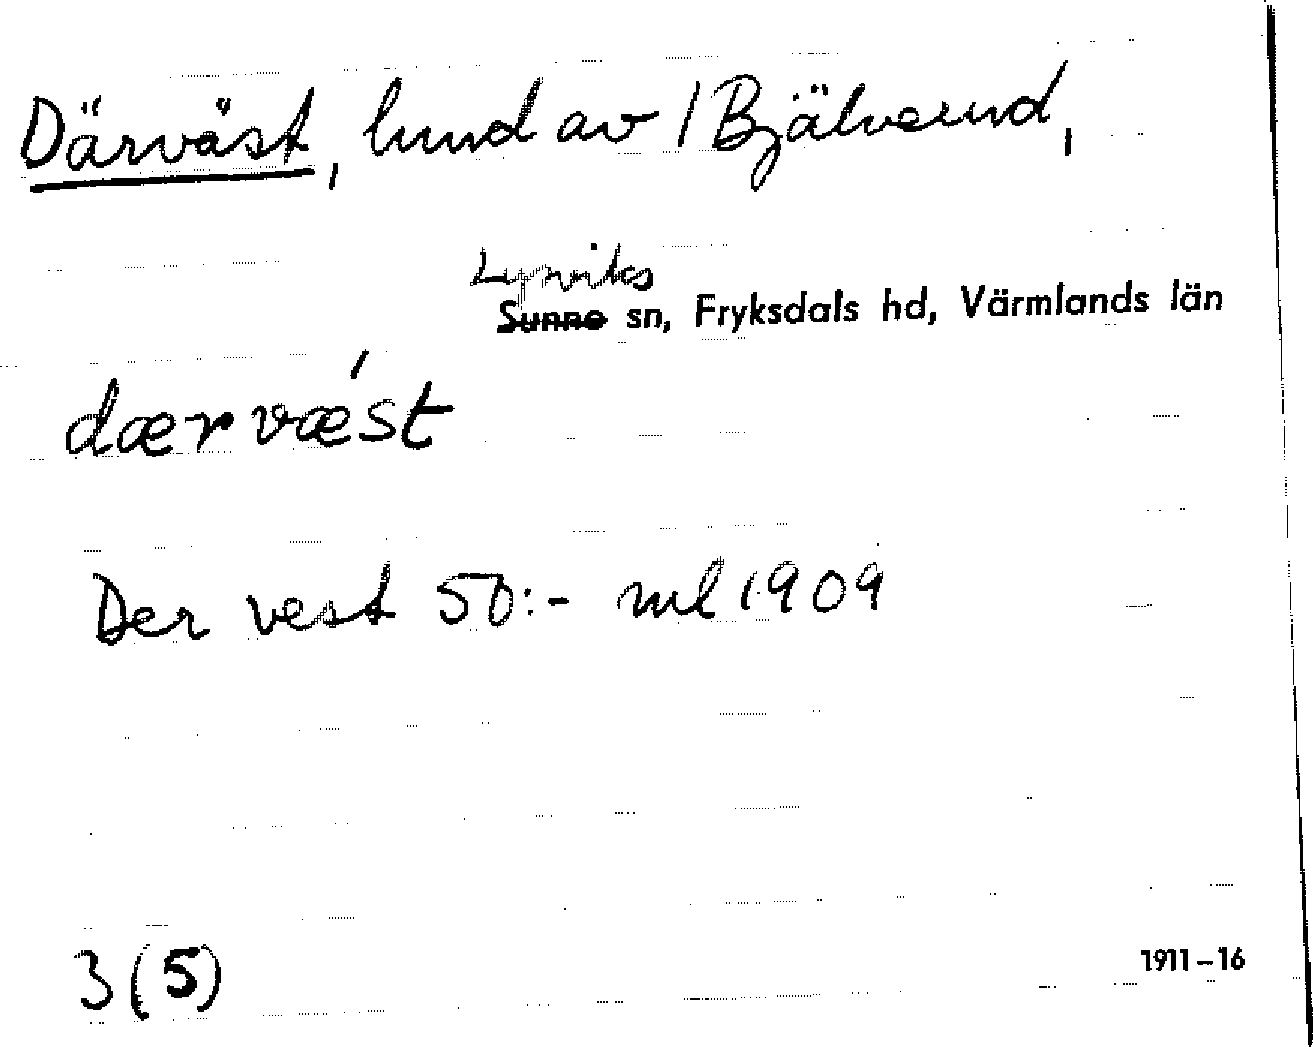 Därväst, hmd av 1 Bjälverud,
Lysviks
Sunne sn, Fryksdals hd, Värmlands län
dærvǽst
Der vest 50:- ml 1909
3 (5)
1911-16